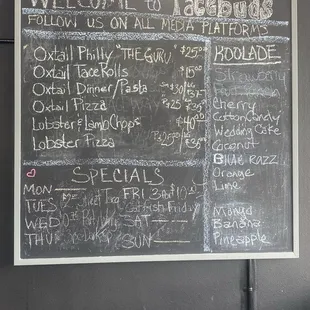 WELCOME to Tacebuds
FOLLOW US ON ALL MEDIA PLATFORMS
Oxtail Philly "THE GURU" $25
Oxtail TaceRolls $15
Oxtail Dinner/Pasta $30/$37
Oxtail Pizza $25 $35
Lobster & LambChops $40
Lobster Pizza $25 $35
KOOLADE
Strawberry
Cherry
CottonCandy
Wedding Cake
Coconut
Blue RAZZ
Orange
Lime
Mango
Banana
Pineapple
SPECIALS
MON
TUES
WED
THU
FRI
Catfish Friday
SAT
SUN